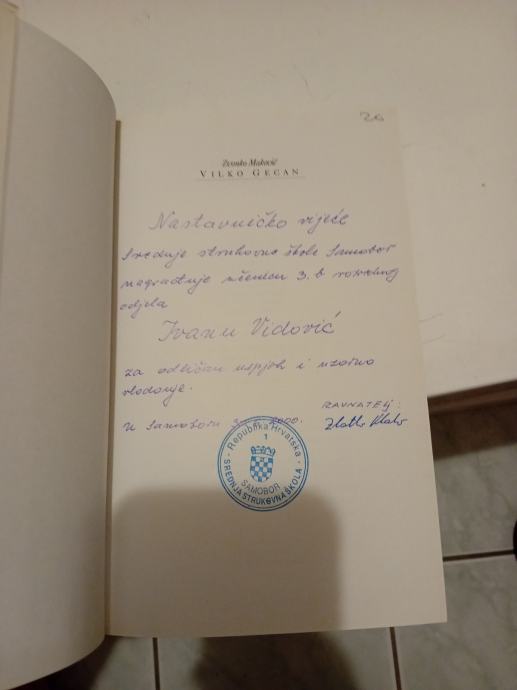 26
Zvonko Maković
VILKO GECAN
Nastavničko vijeće
Srednje strukovne škole Samobor
nagrađuje učenicu 3. b razrednog
odjela
Ivanu Vidović
za odličan uspjeh i uzorno
vladanje.
RAVNATELJ:
U Samoboru 2000.
Republika Hrvatska
1
SAMOBOR
SREDNJA STRUKOVNA ŠKOLA